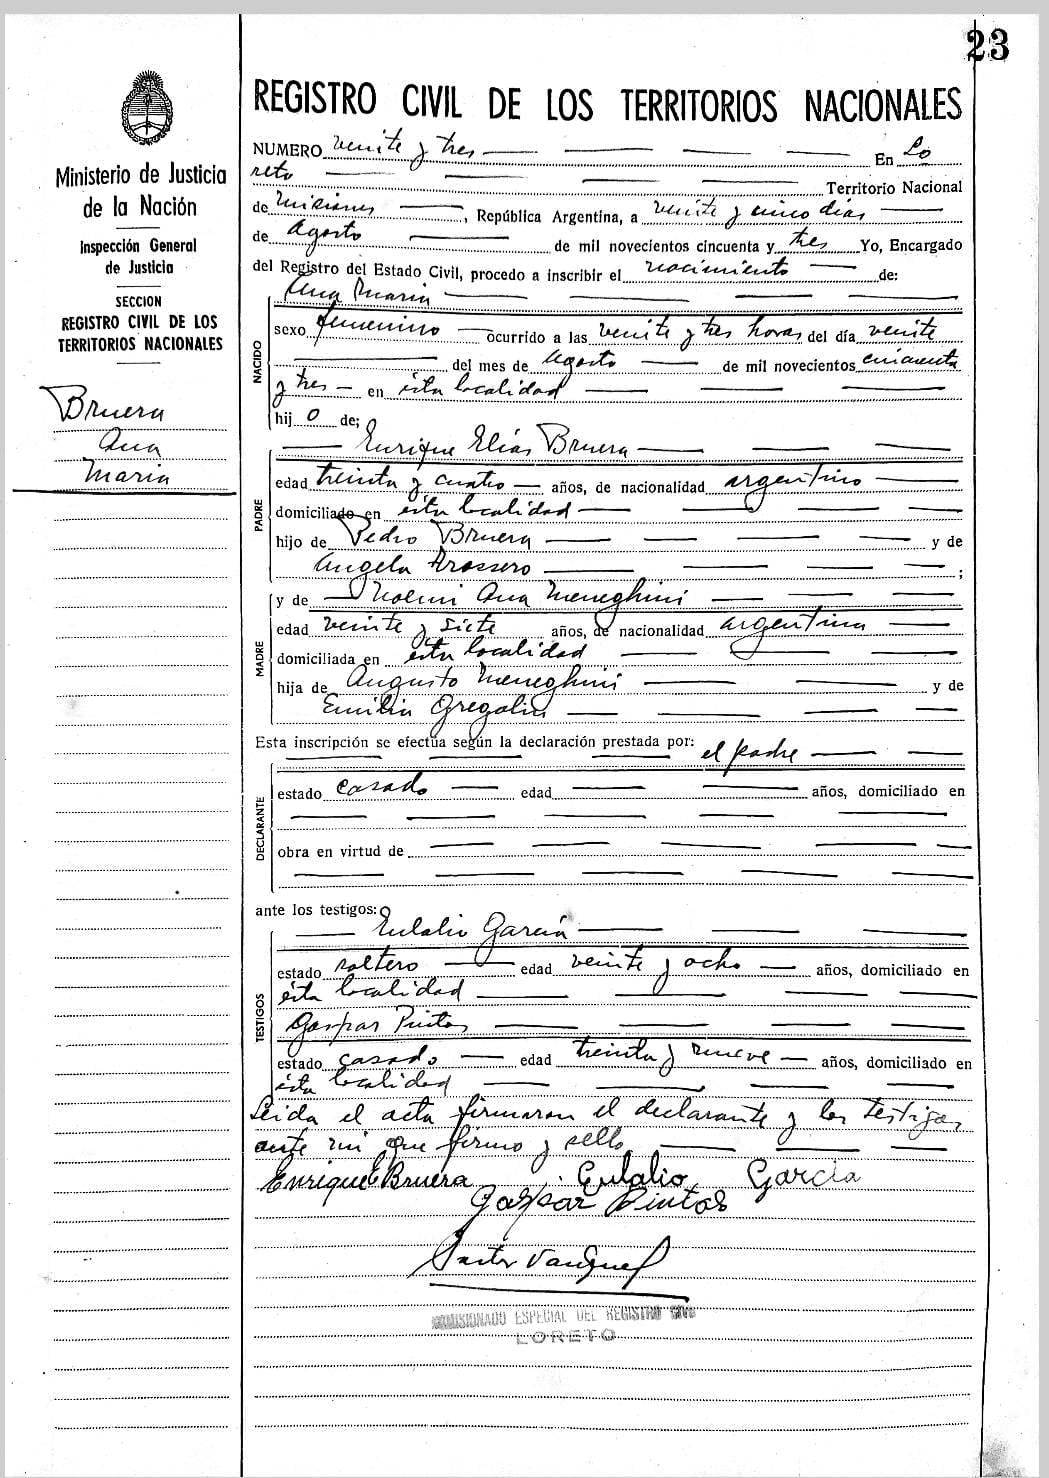 23
Ministerio de Justicia
de la Nación
Inspección General
de Justicia
SECCION
REGISTRO CIVIL DE LOS
TERRITORIOS NACIONALES
Bruera
Ana
Maria
REGISTRO CIVIL DE LOS TERRITORIOS NACIONALES
NUMERO veinte y tres En Lo
reto Territorio Nacional
de Misiones, República Argentina, a veinte y cinco dias
de Agosto de mil novecientos cincuenta y tres Yo, Encargado
del Registro del Estado Civil, procedo a inscribir el nacimiento de:
NACIDO
Ana Maria
sexo femenino ocurrido a las veinte y tres horas del día veinte
del mes de Agosto de mil novecientos cincuenta
y tres en ésta localidad
hij o de;
PADRE
Enrique Elías Bruera
edad treinta y cuatro años, de nacionalidad argentino
domiciliado en ésta localidad
hijo de Pedro Bruera y de
Angela Arossero ;
MADRE
y de Noemi Ana Meneghini
edad veinte y siete años, de nacionalidad argentina
domiciliada en ésta localidad
hija de Augusto Meneghini y de
Emilia Gregolin
Esta inscripción se efectúa según la declaración prestada por: el padre
DECLARANTE
estado casado edad años, domiciliado en
obra en virtud de
ante los testigos:
TESTIGOS
Eulalio García
estado soltero edad veinte y ocho años, domiciliado en
ésta localidad
Gaspar Pintos
estado casado edad treinta y nueve años, domiciliado en
ésta localidad
Leida el acta firmaron el declarante y los testigos
ante mi que firmo y sello
Enrique E Bruera Eulalio Garcia
Gaspar Pintos
COMISIONADO ESPECIAL DEL REGISTRO CIVIL
LORETO